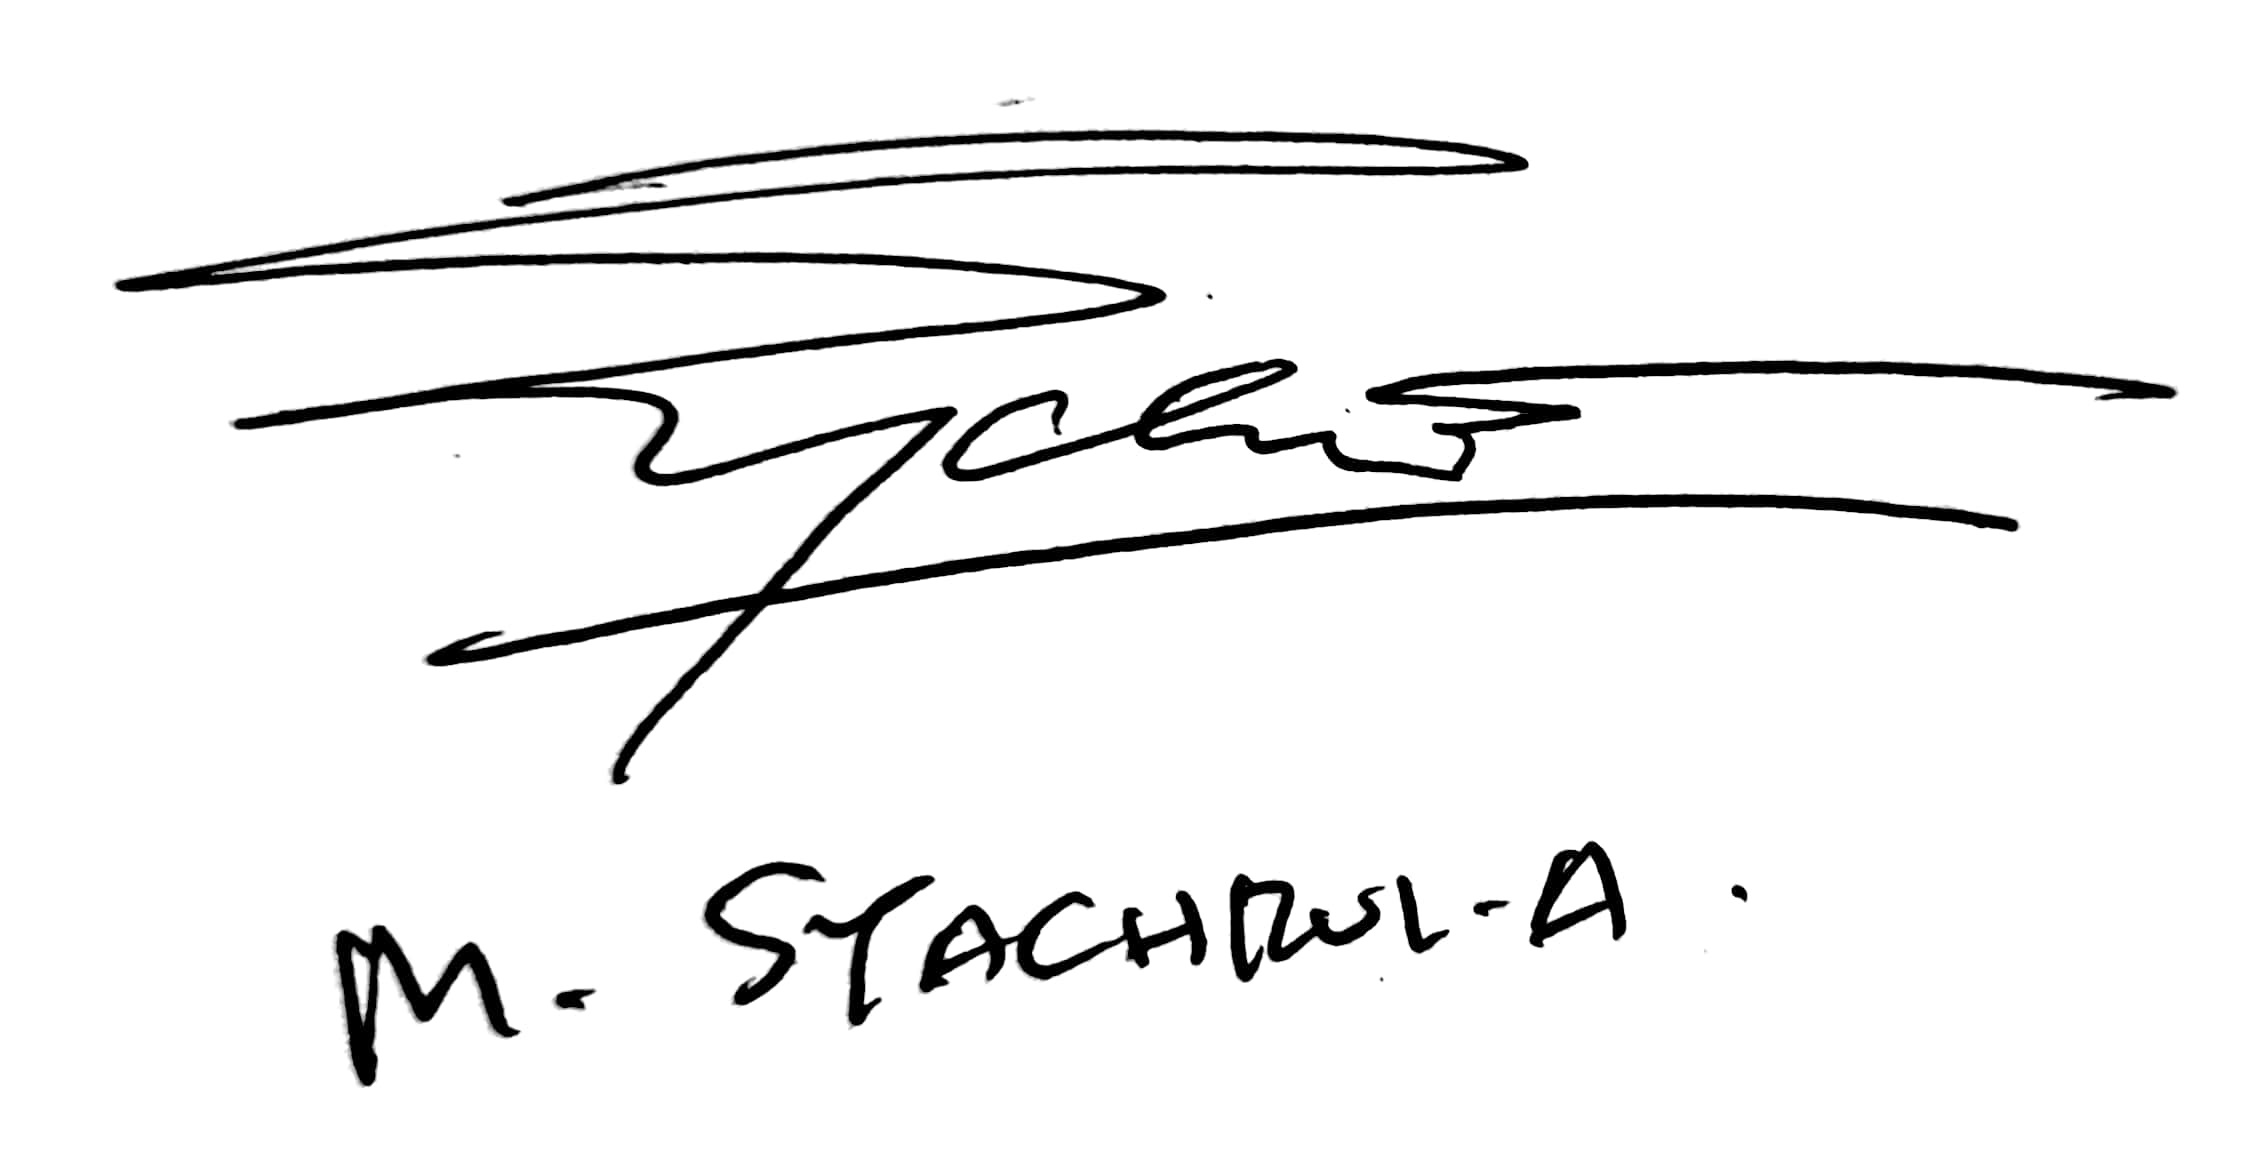 M. SYACHRUL-A.